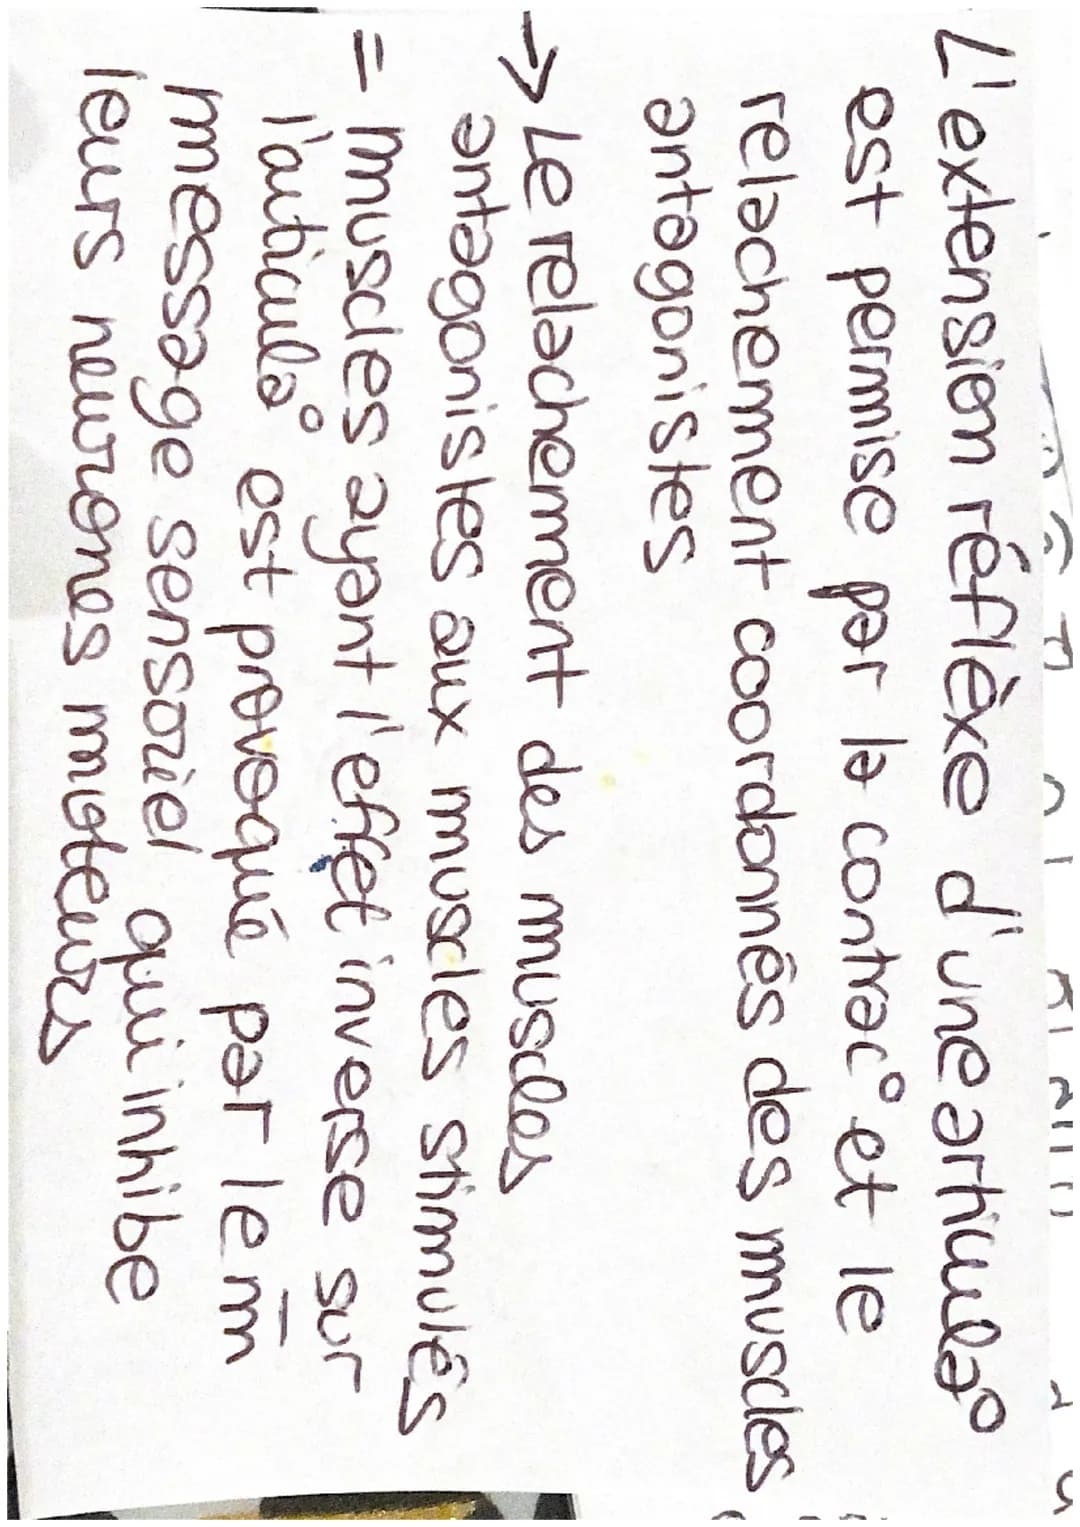 L'extension réflèxe d'une articula°
est permise par la contrac° et le
relachement coordonnés des muscles
antagonistes
→ Le relachement des muscles
antagonistes aux muscles stimulés
= muscles ayant l'effet inverse sur
l'articula° est provoqué par le m̄
message sensoriel qui inhibe
leurs neurones moteurs